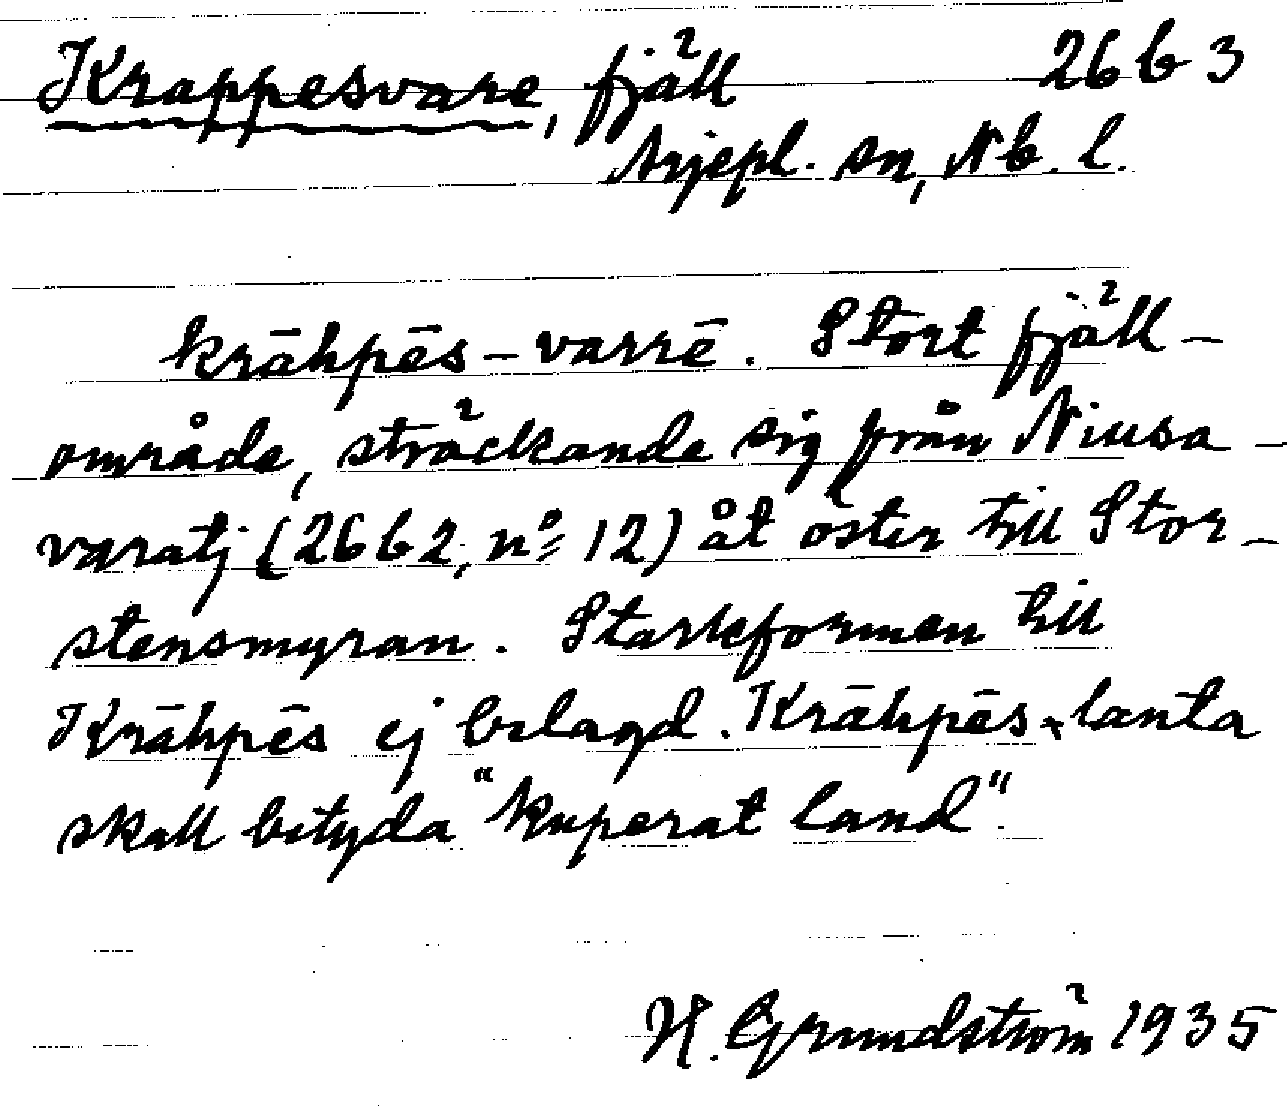 Krappesvare, fjäll 26 b 3
Arjepl. sn, Nb. l.
krāhpēs-varrē. Stort fjäll-
område, sträckande sig från Niusa-
varatj (26 b 2, nº 12) åt öster till Stor-
stensmyran. Starkformen till
Krāhpēs ej belagd. Krāhpēs-lanta
skall betyda "kuperat land".
H. Grundström 1935